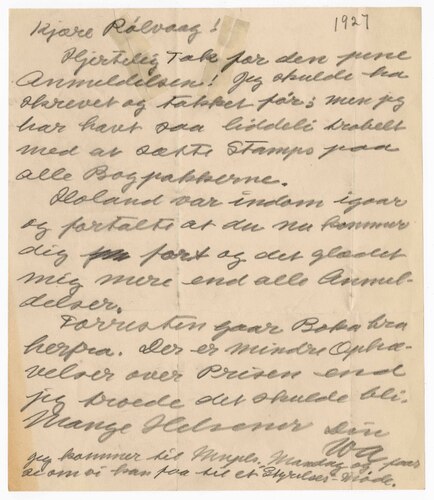 1927
Kjære Rølvaag!
Hjertelig Tak for den pene
Anmeldelsen! Jeg skulde ha
skrevet og takket før; men jeg
har havt saa liddeli trobelt
med at sætte Stamps paa
alle Bogpakkerne.
Holand var indom igaar
og fortalte at du nu kommer
dig fort og det glædet
mig mere end alle Anmel-
delser.
Forresten gaar Boka bra
herfra. Der er mindre Ophæ-
velser over Prisen end
jeg troede det skulde bli.
Mange Helsener Din
Jeg kommer til Mpls. Mandag og faar
se om vi kan faa til et Styrelses-Møde.